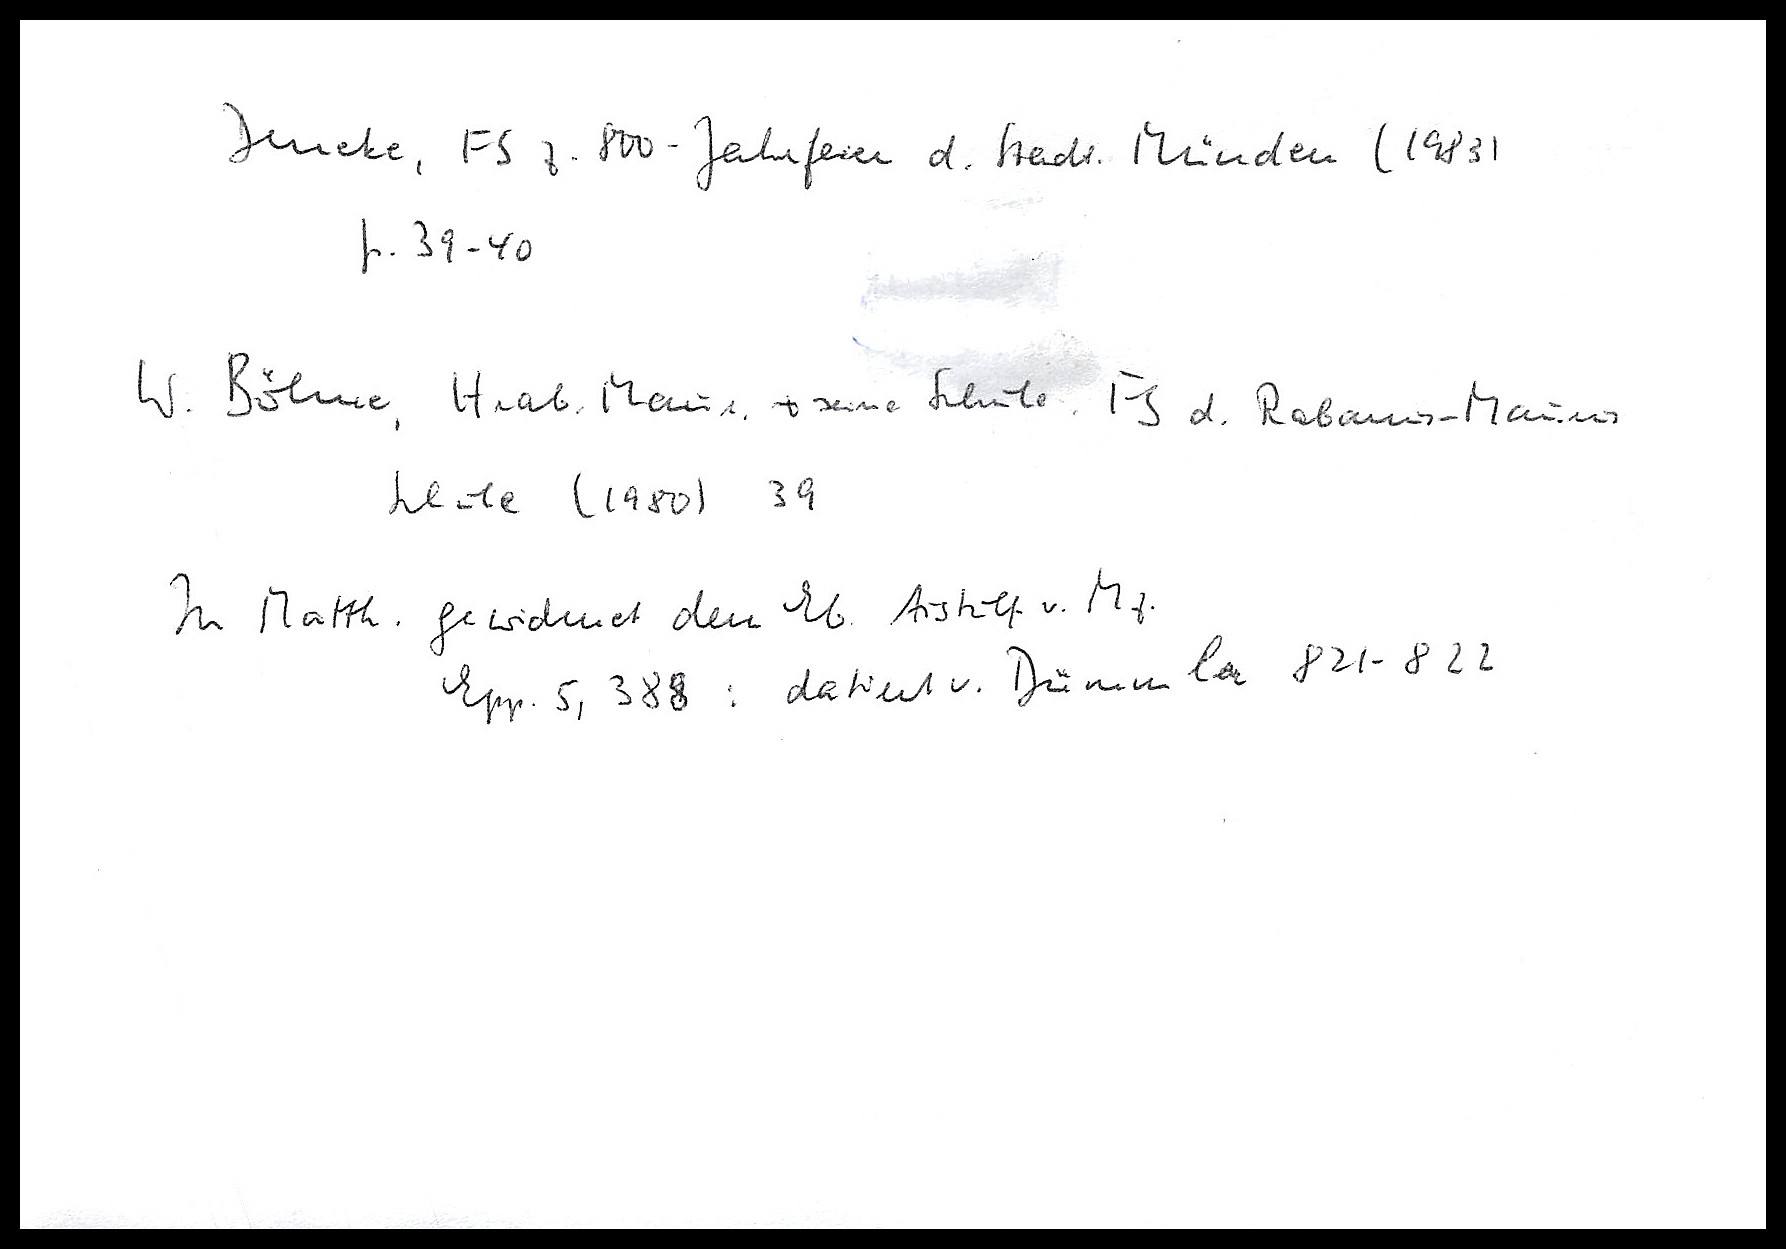 Denecke, FS z. 800-Jahrfeier d. Stadt Münden (1983)
p. 39-40
W. Böhme, Hrab. Maur. + seine Schule. FS d. Rabanus-Maurus
Schule (1980) 39
In Matth. gewidmet dem Eb. Aistulf v. Mz.
Epp. 5, 388 : datiert v. Dümmler 821-822